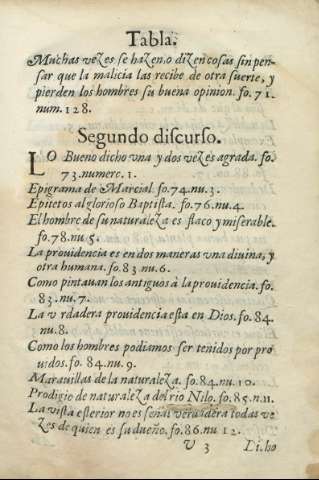 Tabla.
Muchas vezes se hazen.o dizen cosas sin pen-
sar que la malicia las recibe de otra suerte, y
pierden los hombres su buena opinion. fo. 71.
num. 128.
Segundo discurso.
LO Bueno dicho vna y dos vezes agrada. fo.
73. numerc. 1.
Epigrama de Marcial. fo. 74. nu. 3.
Epitetos al glorioso Baptista. fo. 76. nu. 4.
El hombre de su naturaleza es flaco y miserable.
fo. 78. nu. 5.
La prouidencia es en dos maneras vna diuina, y
otra humana. fo. 83. nu. 6.
Como pintauan los antiguos à la prouidencia. fo.
83. nu. 7.
La v rdadera prouidencia esta en Dios. fo. 84.
nu. 8.
Como los hombres podiamos ser tenidos por pro
uidos. fo. 84. nu. 9.
Marauillas de la naturaleza. fo. 84. nu. 10.
Prodigio de naturaleza del rio Nilo. fo. 85. n. 11.
La vista esterior no es señal verdadera todas ve-
zes de quien es su dueño. fo. 86. nu 12.
V 3 Dicho